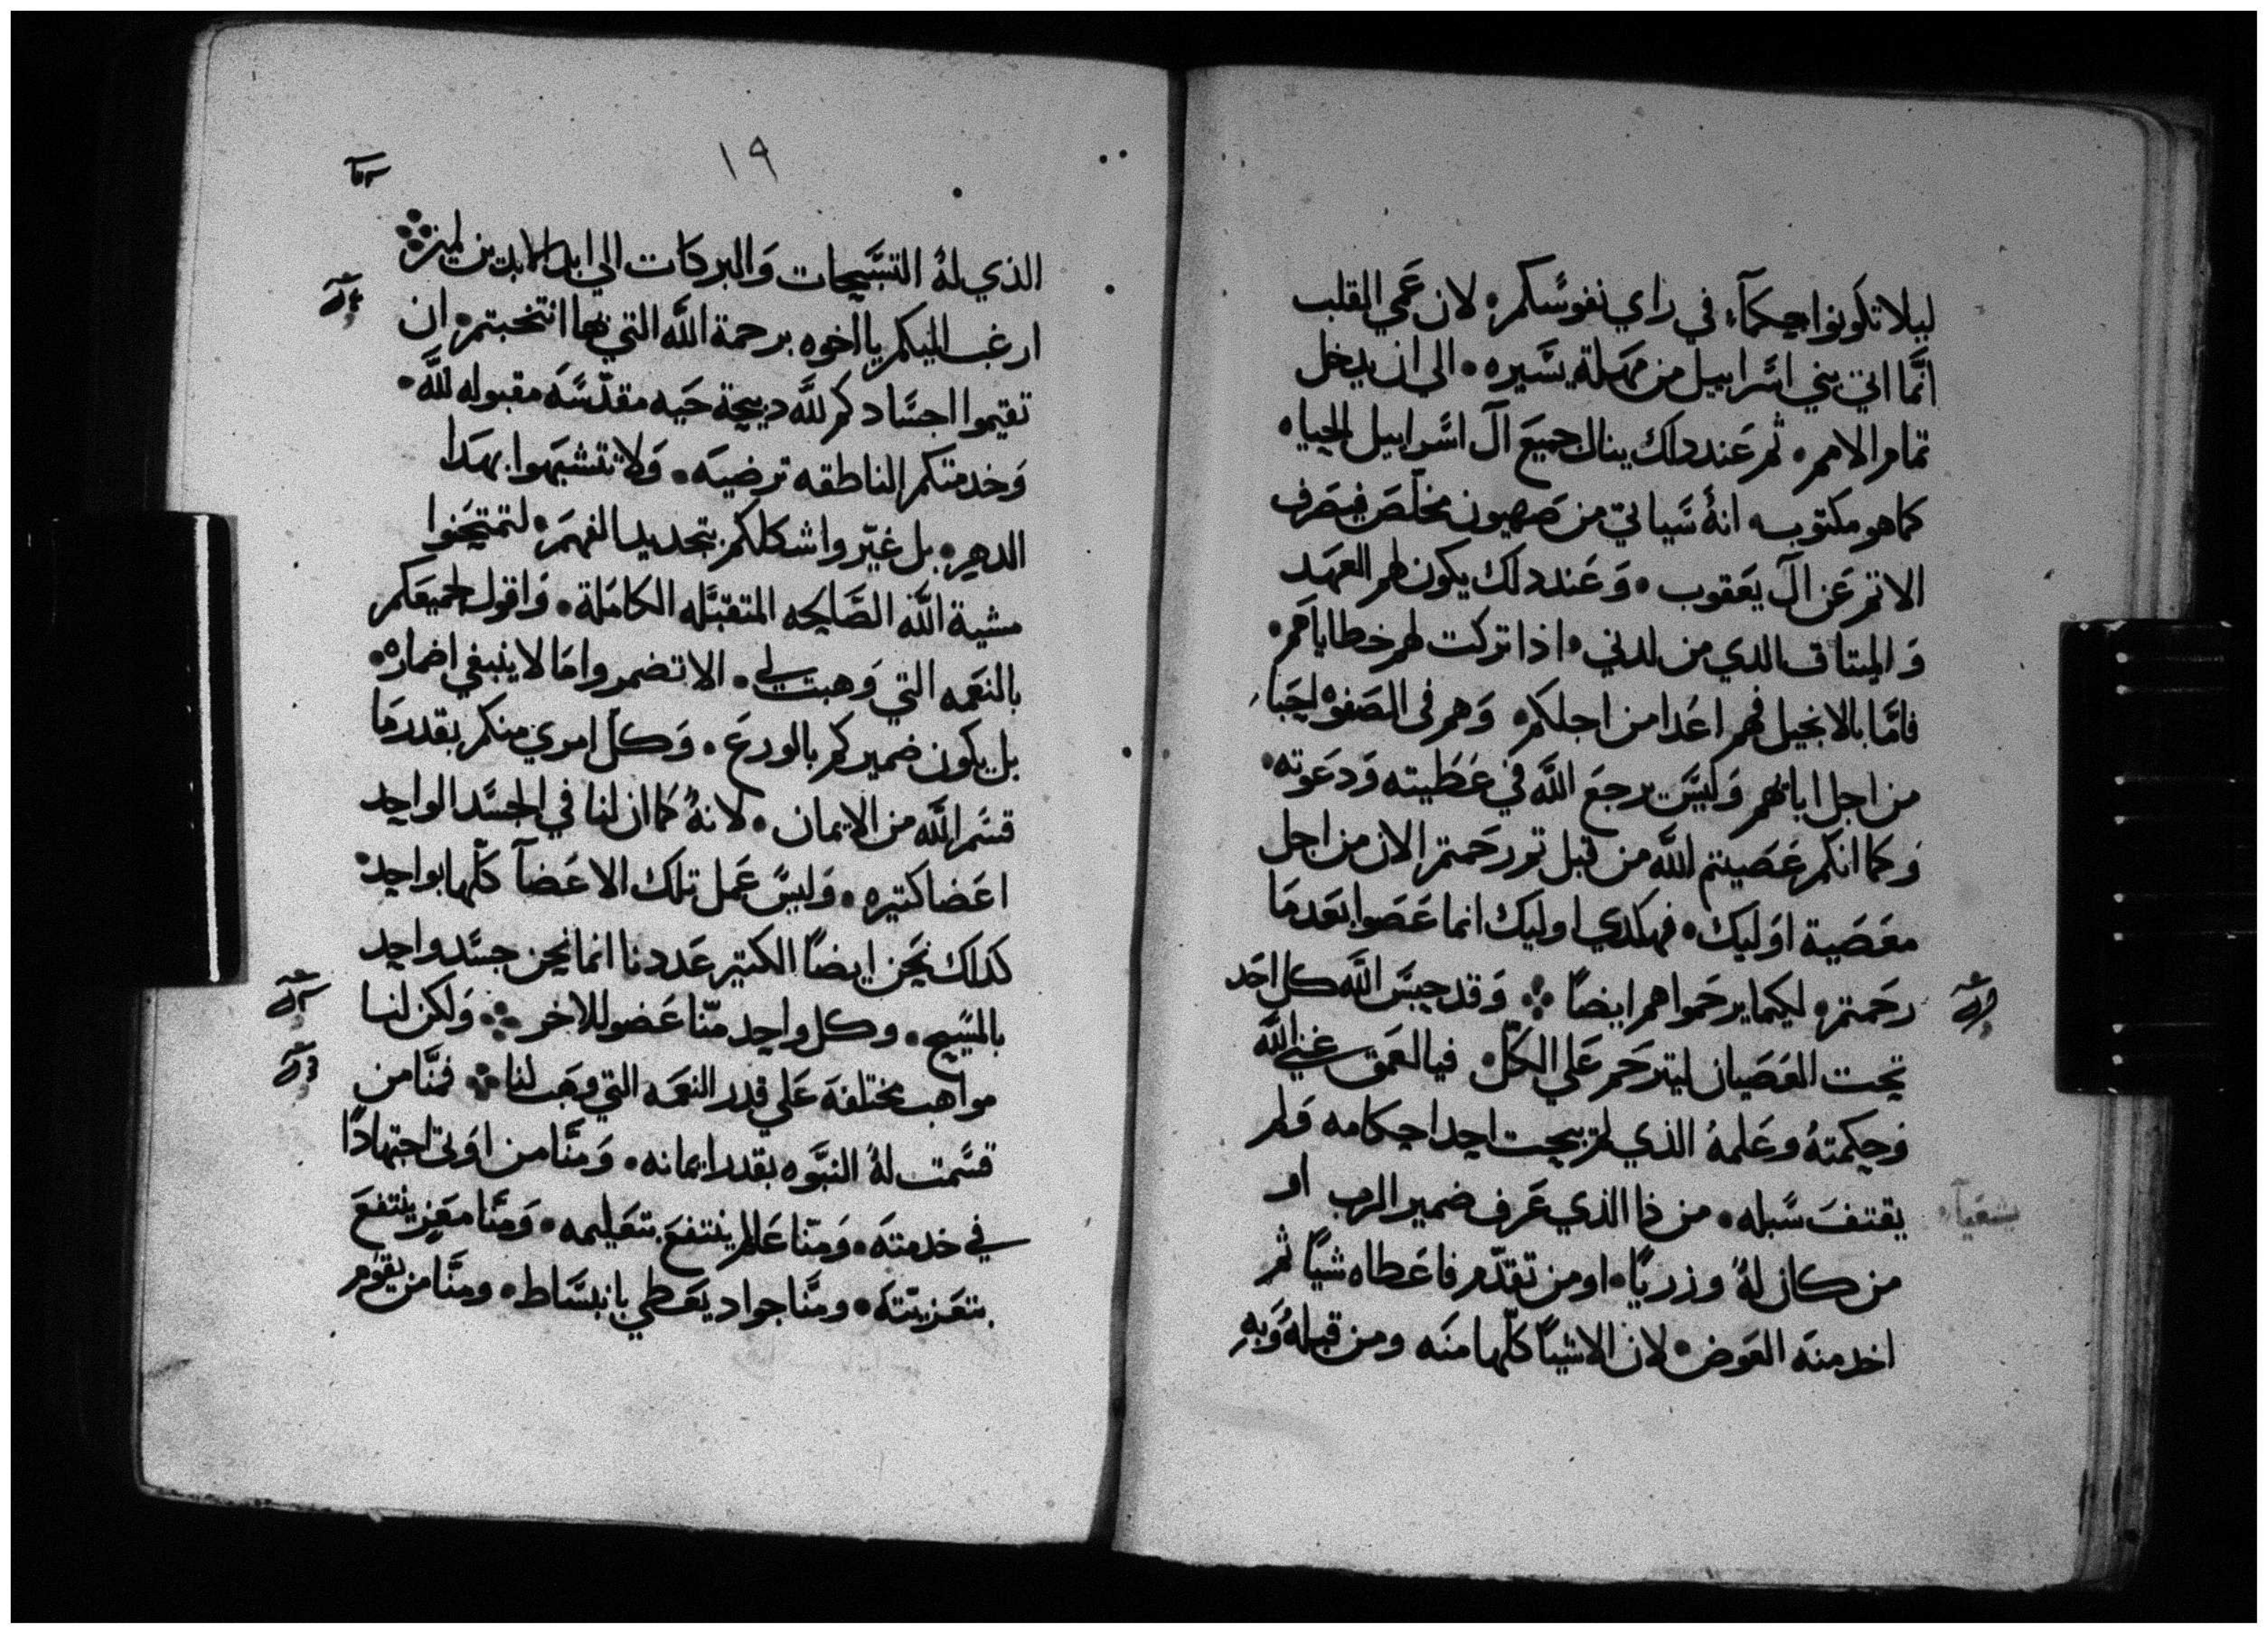 ليلا تكونوا حكمآء في راي نفوسكم؛ لان عمي القلب
انما اتي بني اسراييل من مهلة يسيره • الي ان يدخل
تمام الامم • ثم عند دلك ينال جميع آل اسراييل الحياه
كما هو مكتوب • انهُ سياتي من صهيون مخلص فيصرف
الاتم عن آل يعقوب • وعند دلك يكون لهم العهد
والميتاق الدي من لدني • اذا تركت لهم خطاياهم •
فامّا بالانجيل فهم اعدا من اجلكم • وهم في الصفوه احبا
من اجل اباتهم وليس يرجع اللّه في عطيته ودعوته •
وكما انكم عصيتم للّه من قبل تم رحمتم الان من اجل
معصية اوليك • فهكدي اوليك انما عصوا بعد ما
رحمتم • ليكما يرحموا هم ايضاً ܀ وقد حبس اللّه كل احد
تحت العصيان ليترحم علي الكل • فيا لعمق غني اللّه
وحكمتهُ وعلمهُ الذي لم يبحت احد احكامه ولم
يقتف سبله • من ذا الذي عرف ضمير الرب او
بشعيآ
من كان لهُ وزرياً • او من تقدّم فاعطاه شياً ثم
اخد منه العوض • لان الاشيآ كلّها منه ومن قبلهُ وبهِ
١٩
الذي لهُ التسبيحات والبركات الي ابد الابدين امين ܀
ارغب اليكم يا اخوه برحمة اللّه التي بها انتخبتم • ان
تقيموا اجسادكم للّه دبيحة حيه مقدّسه مقبوله للّه •
وخدمتكم الناطقه ترضيه • ولا تتشبهوا بهدا
الدهر • بل غيّروا شكلكم بتجديد الفهم • لتمتحنوا
مشية اللّه الصالحه المتقبّله الكاملة • واقول لجميعكم
بالنعمه التي وهبت لي • الا تضمروا ما لا ينبغي اضماره •
بل يكون ضميركم بالورع • وكل امري منكم بقدر ما
قسم اللّه من الايمان • لانهُ كما ان لنا في الجسد الواحد
اعضا كتيره • وليس عمل تلك الاعضآ كلّها بواحد •
كدلك نحن ايضاً الكتير عددنا انما نحن جسد واحد
بالمسيح • وكل واحد منّا عضو للاخر ܀ ولكن لنا
مواهب مختلفه علي قدر النعمه التي وهب لنا ܀ فمنّا من
قسمت لهُ النبّوه بقدر ايمانه • ومنّا من اوتي اجتهاداً
في خدمته • ومنّا عالم ينتفع بتعليمه • ومنّا معز ينتفع
بتعزيته • ومنّا جواد يعطي بانبساط • ومنّا من يقوم